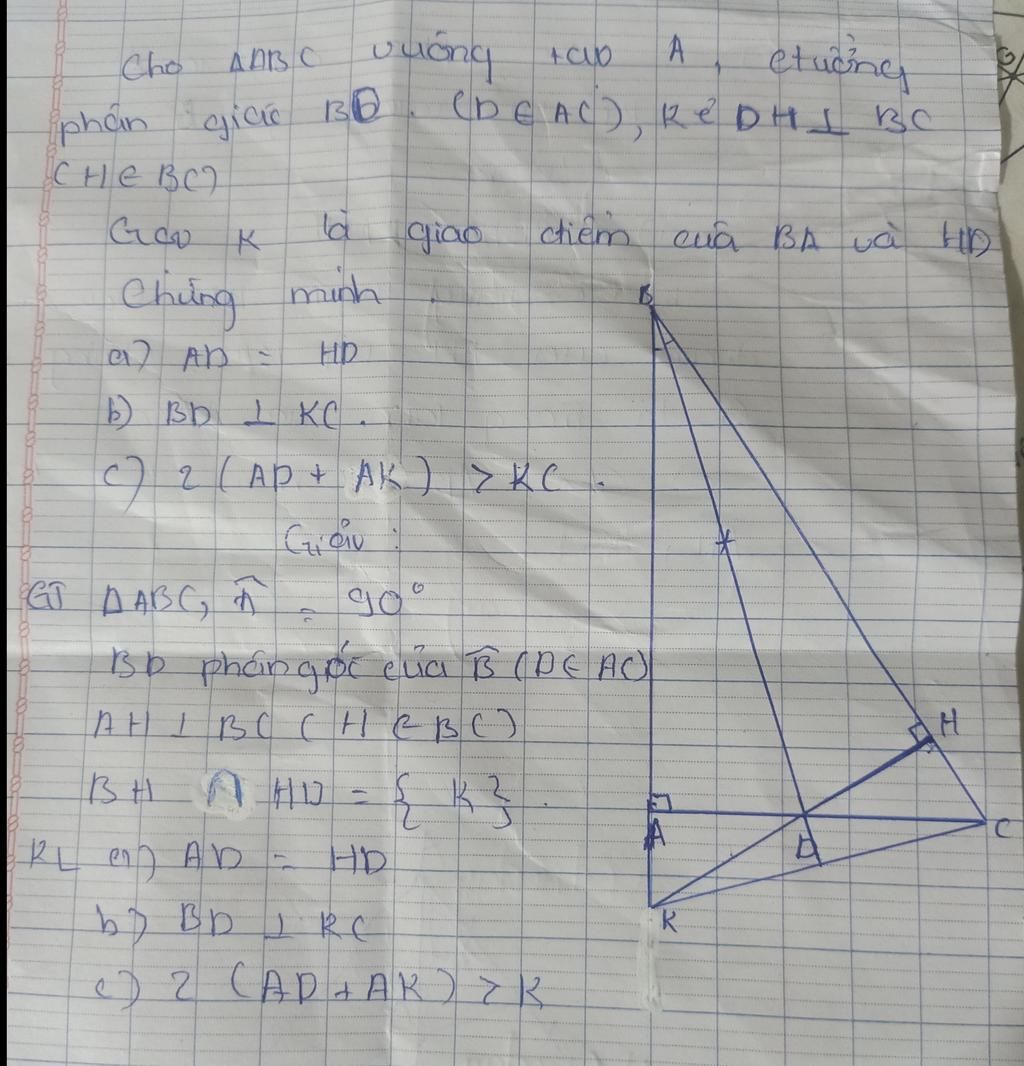 Cho ΔABC vuông tại A, đường
phân giác BD. (D ∈ AC), Kẻ DH ⊥ BC
(H ∈ BC)
Gọi K là giao điểm của BA và HD
Chứng minh.
a) AD = HD
b) BD ⊥ KC.
c) 2 (AD + AK) > KC.
Giải:
GT ΔABC, Â = 90°
BD phân góc của B̂ (D ∈ AC)
AH ⊥ BC (H ∈ BC)
BH ∩ HD = { K }.
KL a) AD = HD
b) BD ⊥ KC
c) 2 (AD + AK) > K
B
H
A
D
C
K